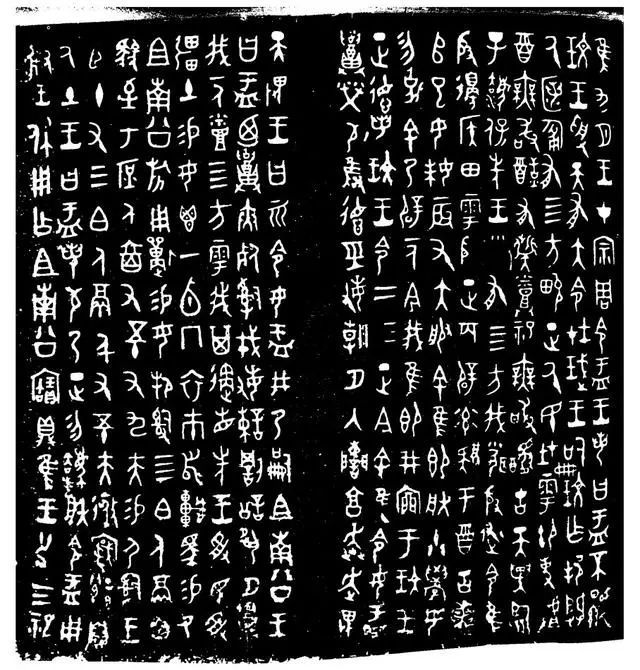 隹九月王才宗周令盂王若曰盂不顯
玟王受天有大令在珷王嗣玟乍邦闢
氒匿匍有四方畯正氒民在雩御事𠭯
酉無敢酖有髭烝祀無敢醻古天異臨
子灋保先王有四方我聞殷述令隹
殷邊侯田雩殷正百辟率肄于酉古喪
𠂤已女妹辰又大服余隹即朕小學女
勿余乃辟一人今我隹即井㐭于玟王
正德若玟王令二三正今余隹令女盂
召榮敬雍德巠敏朝夕入讕享奔走畏
天畏王曰令女盂井乃嗣且南公王
曰盂乃召夾死𤔲戎敏諫罰訟夙夕召
我一人烝四方雩我其遹省先王受民受
疆土易女鬯一卣冂衣巿舄車馬易乃
且南公旂用狩易女邦𤔲四白人鬲自
馭至于庶人六百又五十又九夫易尸𤔲王
臣十又三白人鬲千又五十夫遷自
氒土王曰盂若敬乃正勿灋朕令盂用
對王休用乍且南公寶鼎隹王廿又三祀